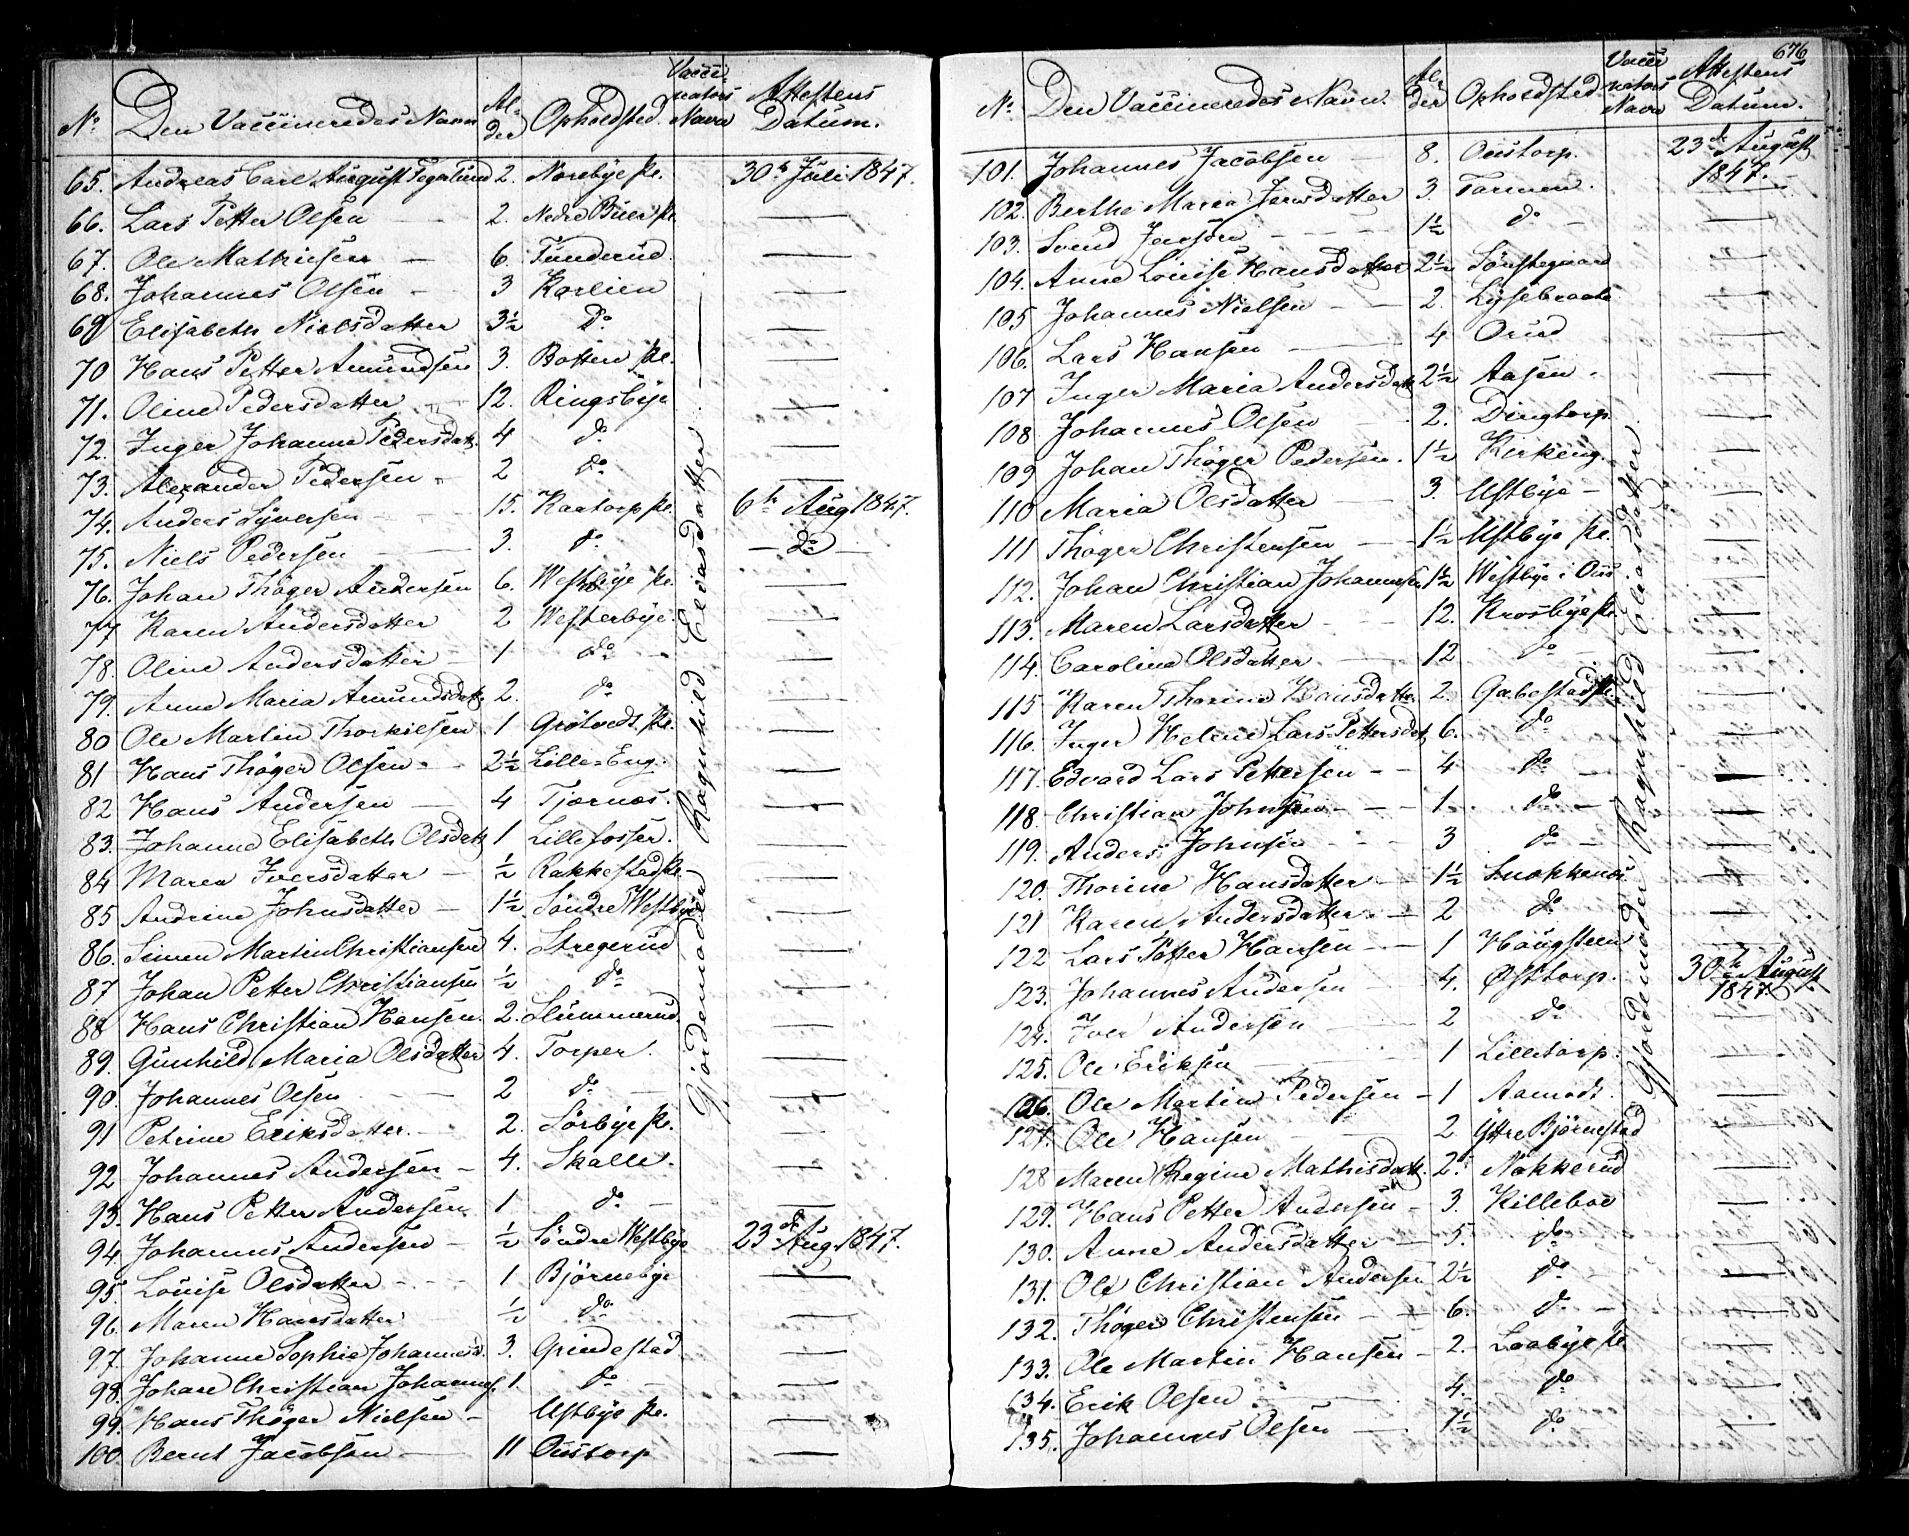 No. Den Vaccineredes Navn Alder Opholdsted. Vaccinators Navn Attestens Datum.
65. Andreas Carl August Fegalund 2. Norebye pl. 30te Juli 1847.
66. Lars Petter Olsen — 2. Nedre Buer pl. —
67. Ole Mathiesen — 6. Tunderud. —
68. Johannes Olsen - 3 Karlien —
69 Elisabeth Nielsdatter 3½ Do —
70 Hans Petter Amundsen 3. Botten pl. —
71. Oline Pedersdatter 12. Ringsbye —
72. Inger Johanne Pedersdatt. 4 do —
73. Alexander Pedersen - 2 do —
74. Anders Syversen - 15. Kaatorp pl. 6te Aug 1847.
75. Niels Pedersen — 3. do — do —
76. Johan Thøger Andersen 6. Westbye pl. —
77 Karen Andersdatter 2 Westerbye. —
78. Oline Andersdatter — 1 do - —
79. Anne Maria Amundsdatt. 2. do —
80 Ole Martin Thorkilsen 1 Grøtvedt. pl. —
81 Hans Thøger Olsen - 2½ Lille-Eng. —
82 Hans Andersen — 4 Tjærnæs. —
83. Johanne Elisabeth Olsdatt 1 Lillefosser. —
84 Maren Iversdatter — ½ Rakkestad pl. —
85 Andrine Johnsdatter — 1½ Søndre Westbye —
86. Simen Martin Christiansen 4. Stregerud —
87 Johan Petter Christiansen ½ do —
88 Hans Christian Hansen. 2. Slummerud. —
89. Gunhild Maria Olsdatter 4. Torper. —
90. Johannes Olsen — 2 do — —
91 Petrine Eriksdatter. — 2. Sørbye pl. —
92 Johannes Andersen — 4. Skalle. —
93. Hans Petter Andersen 1 do — —
94. Johannes Andersen — ½ Søndre Westbye 23de Aug. 1847.
95. Louise Olsdatter - - - 1 Bjørnebye —
96. Maren Hansdatter ½ do —
97. Johanne Sophie Johannesd. 3. Grindestad —
98. Johan Christian Johannes. 1. do — —
99. Hans Thøger Nielsen — Ustbye pl. —
100. Bernt Jacobsen — 11 Oustorp —
Gjordemoder Ragnhild Eliasdatter —
676
No. Den Vaccineredes Navn. Alder Opholdsted Vaccinators Navn Attestens Datum.
101. Johannes Jacobsen — 8. Oustorp. 23de August 1847.
102. Berthe Maria Jensdatter 3. Tormen. —
103. Svend Jensen — 1½ do — —
104. Anne Louise Hansdatter 2½ Sønstegaard —
105 Johannes Nielsen — 2. Lysebraate —
106. Lars Hansen — 4 Orud —
107 Inger Maria Andersdatt 2½ Aasen - —
108 Johannes Olsen — 2. Dingtorp. —
109 Johan Thøger Pedersen. 1½ Kirkeng. —
110 Maria Olsdatter — 3. Ustbye — —
111 Thøger Christensen — 1½ Ustbye pl. —
112. Johan Christian Johannesen 1½ Westbye i Ous —
113. Maren Larsdatter — 12. Krosbye pl. —
114. Caroline Olsdatter. — 12 do —
115 Karen Thorine Hansdatter 2. Gabestad pl. —
116. Inger Helene Lars Pettersdat. 6. do —
117. Edvard Lars Pettersen — 4 do — —
118. Christian Johnsen — 1. do — —
119. Anders Johnsen - 3 do — —
120. Thorine Hansdatter — 1½ Snokkenæs —
121 Karen Andersdatter. — 2 do —
122 Lars Petter Hansen — 1 Haugsteen —
123. Johannes Andersen — 4. Østtorp. 30te August 1847.
124. Iver Andersen — 2 do —
125. Ole Eriksen — 1 Lilletorp. —
126. Ole Martin Pedersen — 1 Aamodt. —
127. Ole Hansen — 2. Ytre Bjørnestad —
128 Maren Regine Mathisdatt. 2. Nakkerud —
129. Hans Petter Andersen — 3. Killeboe —
130. Anne Andersdatter — 5. do —
131. Ole Christian Andersen 2½ do - —
132. Thøger Christensen — 6. do — —
133. Ole Martin Hansen — 2. Laabye pl. —
134. Erik Olsen — 4. do —
135. Johannes Olsen — 1½ do —
Gjordemoder Ragnhild Eliasdatter